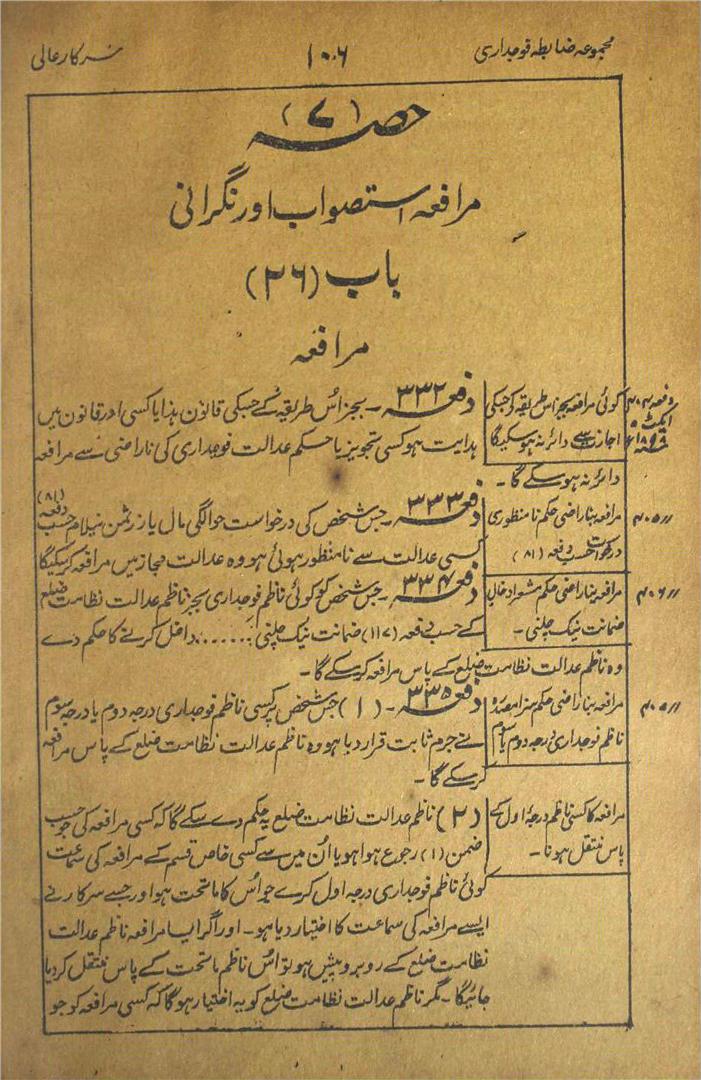 مجموعہ ضابطہ فوجداری
۱۰۶
سرکار عالی
حصہ (۷)
مرافعہ استصواب اور نگرانی
باب (۲۶)
مرافعہ
دفعہ ۴۰۴
ایکٹ
کوئی مرافعہ بجز اس طریقہ کے جسکی
اجازت ہے دائر نہ ہو سکیگا
دفعہ ۳۳۲ ۔ بجز اُس طریقہ کے جسکی قانون ہذا یا کسی اور قانون میں
ہدایت ہو کسی تجویز یا حکم عدالت فوجداری کی ناراضی سے مرافعہ
دائر نہ ہو سکے گا ۔
〃 ۴۰۵
مرافعہ بناراضی حکم نامنظوری
درخواست حسب دفعہ (۸۱)
دفعہ ۳۳۳ ۔ جس شخص کی درخواست حوالگی مال یا زر ثمن نیلام حسب دفعہ (۸۱)
کسی عدالت سے نامنظور ہوئی ہو وہ عدالت مجاز میں مرافعہ کر سکیگا
〃 ۴۰۶
مرافعہ بناراضی حکم مشعر ادخال
ضمانت نیک چلنی ۔
دفعہ ۳۳۴ ۔ جس شخص کو کوئی ناظم فوجداری بجز ناظم عدالت نظامت ضلع
کے حسب دفعہ (۱۱۷) ضمانت نیک چلنی ...... داخل کرنے کا حکم دے
وہ ناظم عدالت نظامت ضلع کے پاس مرافعہ کر سکے گا ۔
مرافعہ بناراضی حکم سزا مصدرہ
ناظم فوجداری درجہ دوم یا سوم
دفعہ ۳۳۵ ۔ (۱) جس شخص پر کسی ناظم فوجداری درجہ دوم یا درجہ سوم
نے جرم ثابت قرار دیا ہو وہ ناظم عدالت نظامت ضلع کے پاس مرافعہ
کر سکے گا ۔
مرافعہ کا کسی ناظم درجہ اول کے
پاس منتقل ہونا ۔
(۲) ناظم عدالت نظامت ضلع یہ حکم دے سکے گا کہ کسی مرافعہ کی جو حسب
ضمن (۱) رجوع ہوا ہو یا اُن میں سے کسی خاص قسم کے مرافعہ کی سماعت
کوئی ناظم فوجداری درجہ اول کرے جو اُس کا ماتحت ہو اور جسے سرکار نے
ایسے مرافعہ کی سماعت کا اختیار دیا ہو ۔ اور اگر ایسا مرافعہ ناظم عدالت
نظامت ضلع کے روبرو پیش ہو تو اُس ناظم ماتحت کے پاس منتقل کر دیا
جائیگا ۔ مگر ناظم عدالت نظامت ضلع کو یہ اختیار ہوگا کہ کسی مرافعہ کو جو